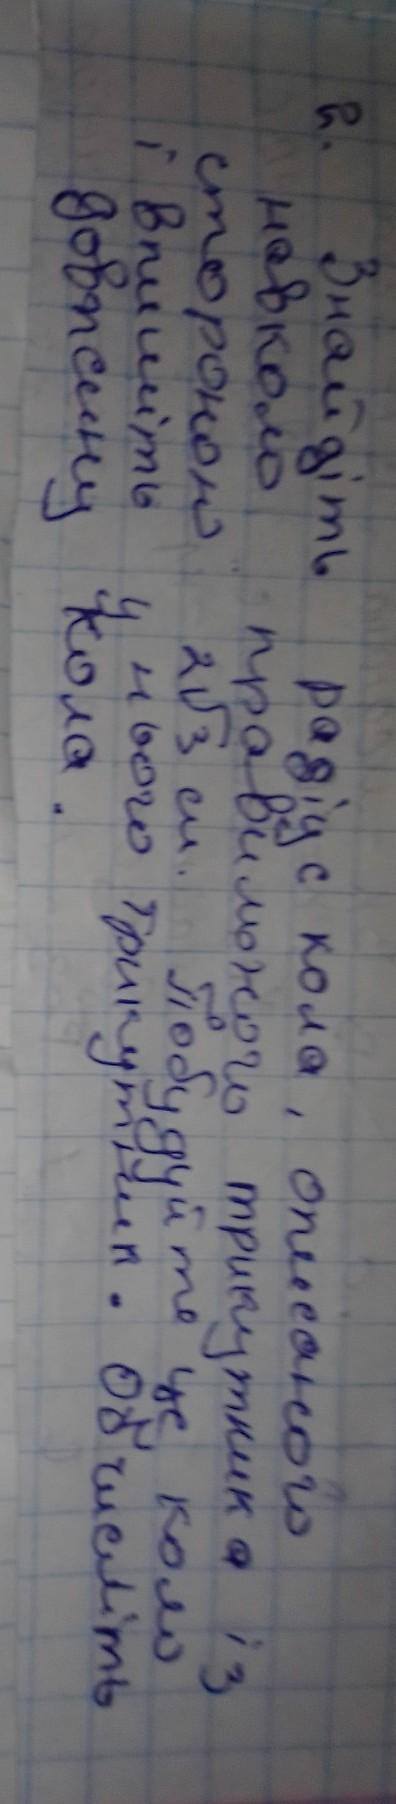 2. Знайдіть радіус кола, описаного
навколо правильного трикутника із
стороною 2√3 см. Побудуйте це коло
і впишіть у нього трикутник. Обчисліть
довжину кола.